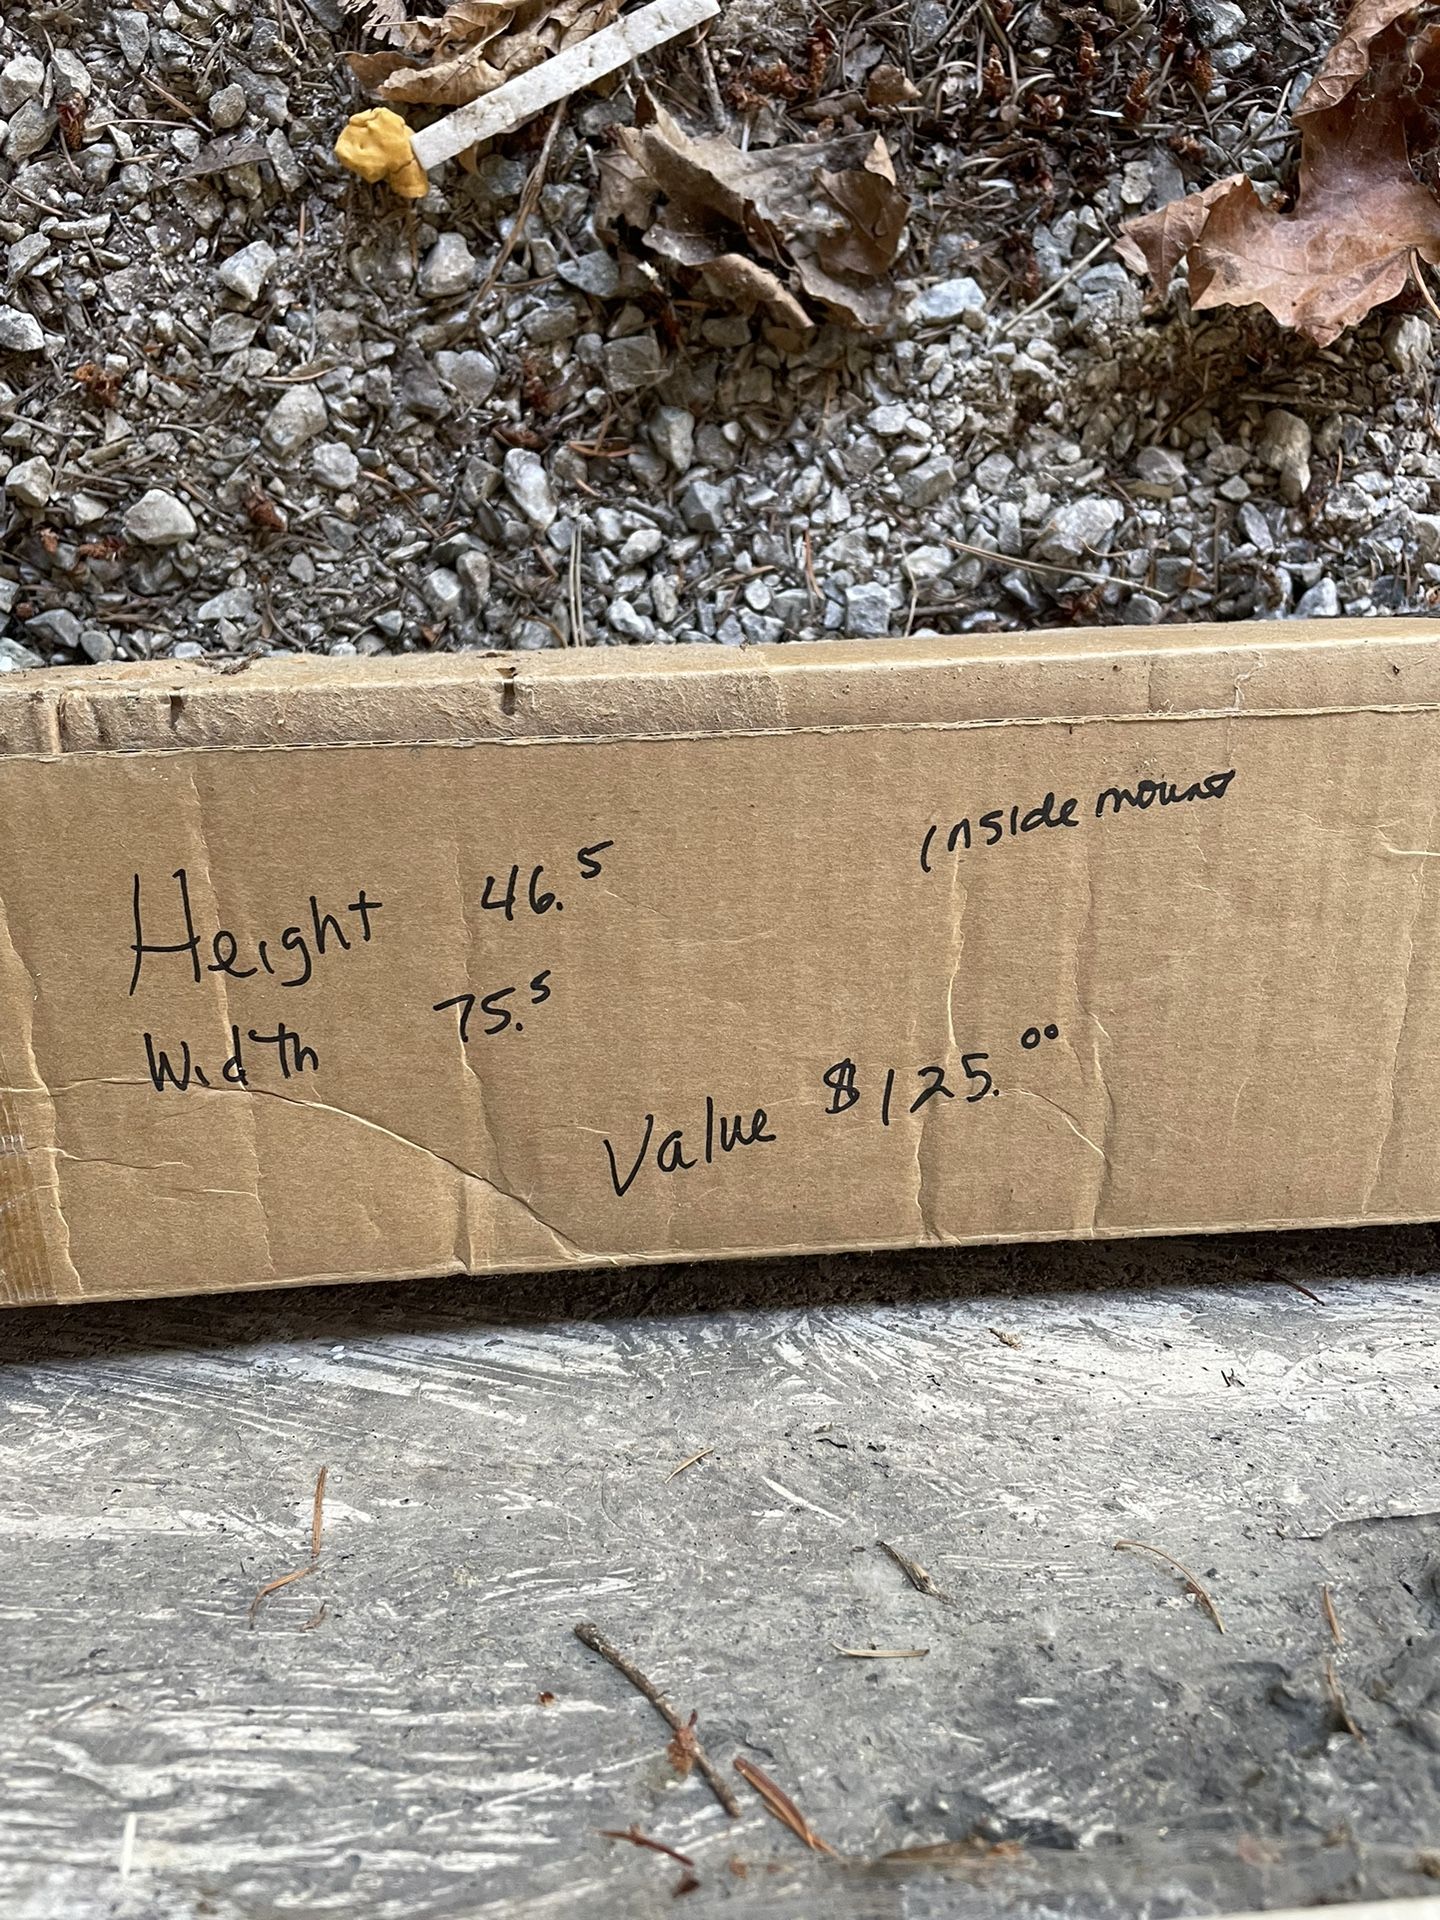 inside mount
Height 46.5
Width 75.5
Value $125.00